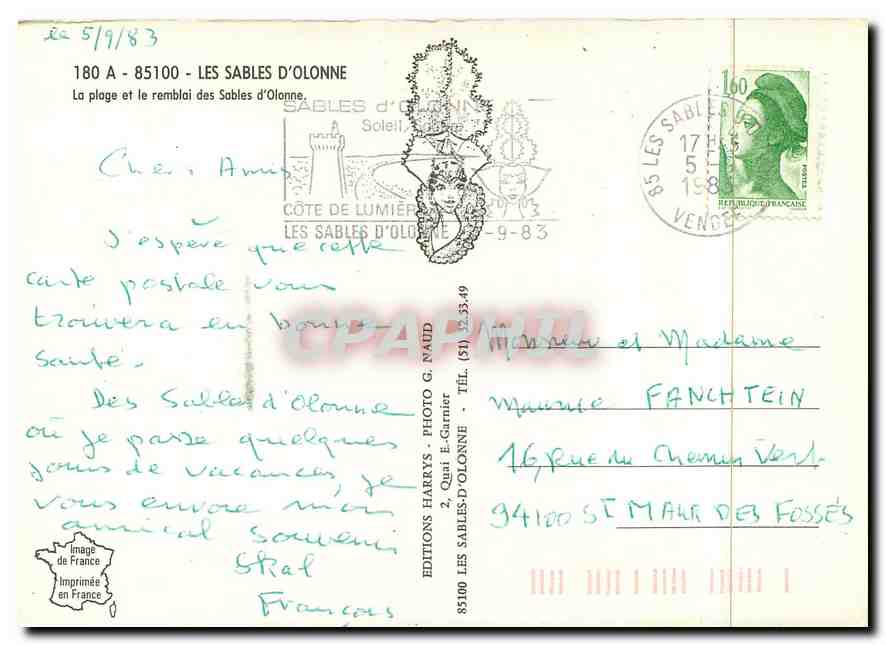 le 5/9/83
180 A - 85100 - LES SABLES D'OLONNE
La plage et le remblai des Sables d'Olonne.
SABLES d'OLONNE
Soleil,
CÔTE DE LUMIÈR
LES SABLES D'OLONNE -9-83
85 LES SABLES D
17 H
5
1983
VENDEE
1,60
POSTES
REPUBLIQUE FRANÇAISE
Chers Amis
J'espère que cette
carte postale vous
trouvera en bonne
santé.
Des Sables d'Olonne
où je passe quelques
jours de vacances, je
vous envoie mon
amical souvenir
Skal
François
Image
de France
Imprimée
en France
EDITIONS HARRYS - PHOTO G. NAUD
2, Quai E.-Garnier
85100 LES SABLES-D'OLONNE - TÉL. (51) 32.53.49
CPAPHIL
Monsieur et Madame
Maurice FANCHTEIN
16, rue du Chemin Vert
94100 ST MAUR DES FOSSÉS